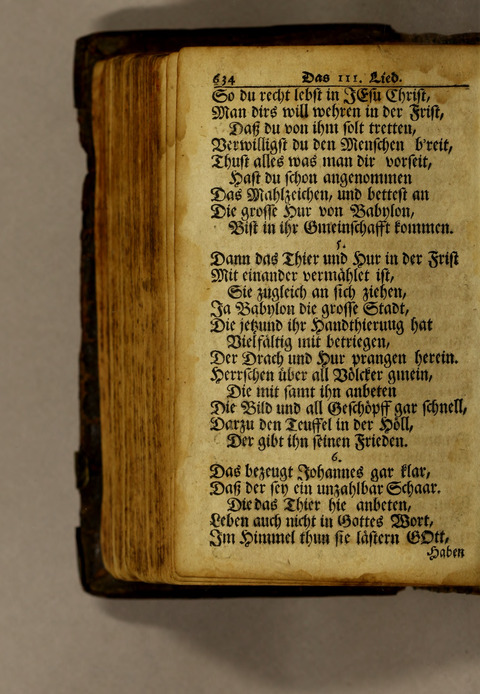 634 Das III. Lied.
So du recht lebst in JEsu Christ,
Man dirs will wehren in der Frist,
Daß du von ihm solt tretten,
Verwilligst du den Menschen b'reit,
Thust alles was man dir vorseit,
Hast du schon angenommen
Das Mahlzeichen, und bettest an
Die grosse Hur von Babylon,
Bist in ihr Gmeinschafft kommen.
5.
Dann das Thier und Hur in der Frist
Mit einander vermählet ist,
Sie zugleich an sich ziehen,
Ja Babylon die grosse Stadt,
Die jetzund ihr Handthierung hat
Vielfältig mit betriegen,
Der Drach und Hur prangen herein.
Herrschen über all Völcker gmein,
Die mit samt ihn anbeten
Die Bild und all Geschöpff gar schnell,
Darzu den Teuffel in der Höll,
Der gibt ihn seinen Frieden.
6.
Das bezeugt Johannes gar klar,
Daß der sey ein unzahlbar Schaar.
Die das Thier hie anbeten,
Leben auch nicht in Gottes Wort,
Im Himmel thun sie lästern GOtt,
Haben